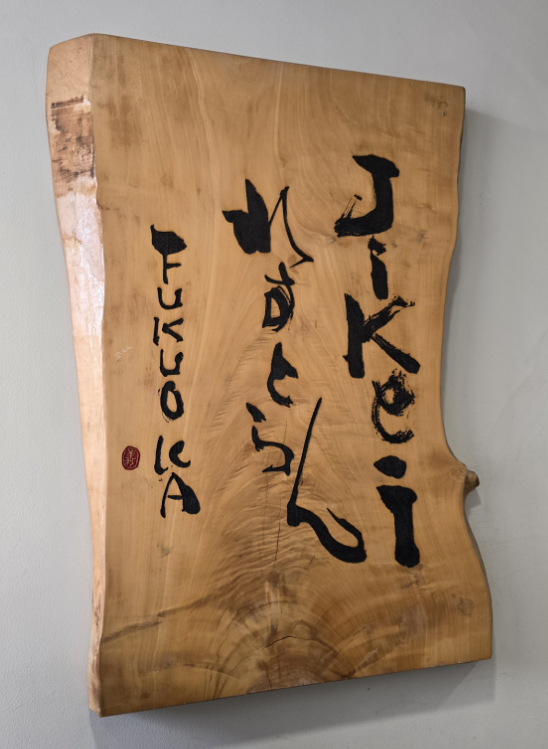 JiKei
れすとらん
FUKUOKA